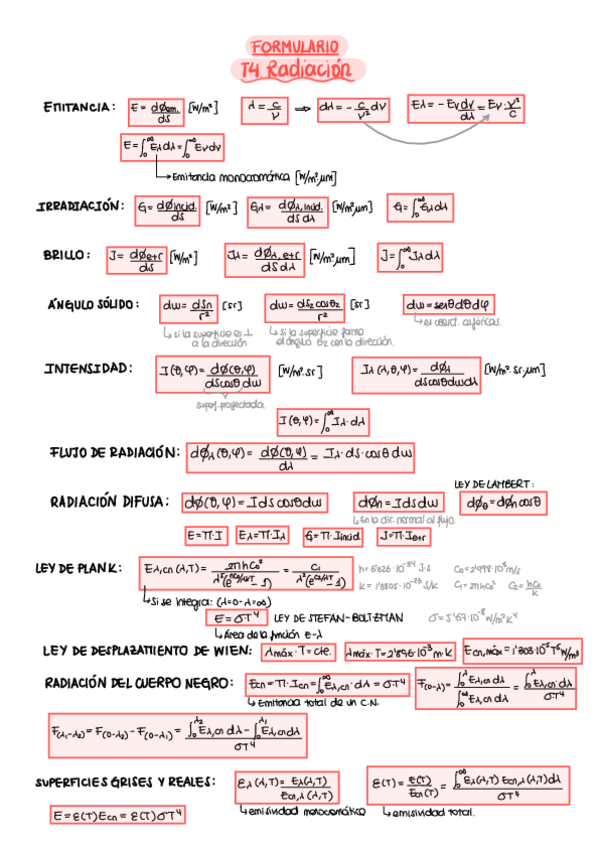 FORMULARIO
T4 Radiación
EMITANCIA: E = dØem./dS [W/m²] λ = c/ν ⇒ dλ = -c/ν² dν Eλ = -Eν dν/dλ = Eν·ν²/c
E = ∫₀^∞ Eλ dλ = ∫₀^∞ Eν dν
↳ Emitancia monocromática [W/m²·μm]
IRRADIACIÓN: G = dØincid./dS [W/m²] Gλ = dØλ,incid./dS dλ [W/m²·μm] G = ∫₀^∞ Gλ dλ
BRILLO: J = dØe+r/dS [W/m²] Jλ = dØλ,e+r/dS dλ [W/m²·μm] J = ∫₀^∞ Jλ dλ
ÁNGULO SÓLIDO: dw = dSn/r² [sr] dw = dS₂cosθ₂/r² [sr] dw = senθ dθ dφ
↳ si la superficie es ⊥ a la dirección
↳ si la superficie forma el ángulo θ₂ con la dirección.
↳ en coord. esféricas.
INTENSIDAD: I(θ,φ) = dØ(θ,φ)/dScosθ dw [W/m²·sr] Iλ(λ,θ,φ) = dØλ/dScosθ dw dλ [W/m²·sr·μm]
superf. proyectada
I(θ,φ) = ∫₀^∞ Iλ·dλ
FLUJO DE RADIACIÓN: dØλ(θ,φ) = dØ(θ,φ)/dλ = Iλ·dS·cosθ dw
LEY DE LAMBERT:
RADIACIÓN DIFUSA: dØ(θ,φ) = I dS cosθ dw dØn = I dS dw dØθ = dØn cosθ
↳ En la dir. normal al flujo.
E = π·I Eλ = π·Iλ G = π·Iincid J = π·Ie+r
LEY DE PLANK: Eλ,cn(λ,T) = 2πhCo²/λ⁵(e^(hCo/λkT) - 1) = C₁/λ⁵(e^(C₂/λT) - 1) h = 6'626·10⁻³⁴ J·s Co = 2'998·10⁸ m/s
k = 1'3805·10⁻²³ J/K C₁ = 2πhCo² C₂ = hCo/k
↳ Si se integra: (λ=0 - λ=∞)
E = σT⁴ LEY DE STEFAN-BOLTZMAN σ = 5'67·10⁻⁸ W/m²K⁴
↳ Área de la función E-λ
LEY DE DESPLAZAMIENTO DE WIEN: λmáx·T = cte. λmáx·T = 2'898·10⁻³ m·K Ecn,máx = 1'308·10⁻⁵ T⁵ W/m³
RADIACIÓN DEL CUERPO NEGRO: Ecn = π·Icn = ∫₀^∞ Eλ,cn·dλ = σT⁴ F(0-λ) = ∫₀^λ Eλ,cn dλ/∫₀^∞ Eλ,cn dλ = ∫₀^λ Eλ,cn·dλ/σT⁴
↳ Emitancia total de un C.N.
F(λ₁-λ₂) = F(0-λ₂) - F(0-λ₁) = ∫₀^λ₂ Eλ,cn dλ - ∫₀^λ₁ Eλ,cn dλ/σT⁴
SUPERFICIES GRISES Y REALES: ελ(λ,T) = Eλ(λ,T)/Ecn,λ(λ,T) ε(T) = E(T)/Ecn(T) = ∫₀^∞ ελ(λ,T) Ecn,λ(λ,T)dλ/σT⁴
↳ emisividad monocromática ↳ emisividad total.
E = ε(T) Ecn = ε(T) σT⁴